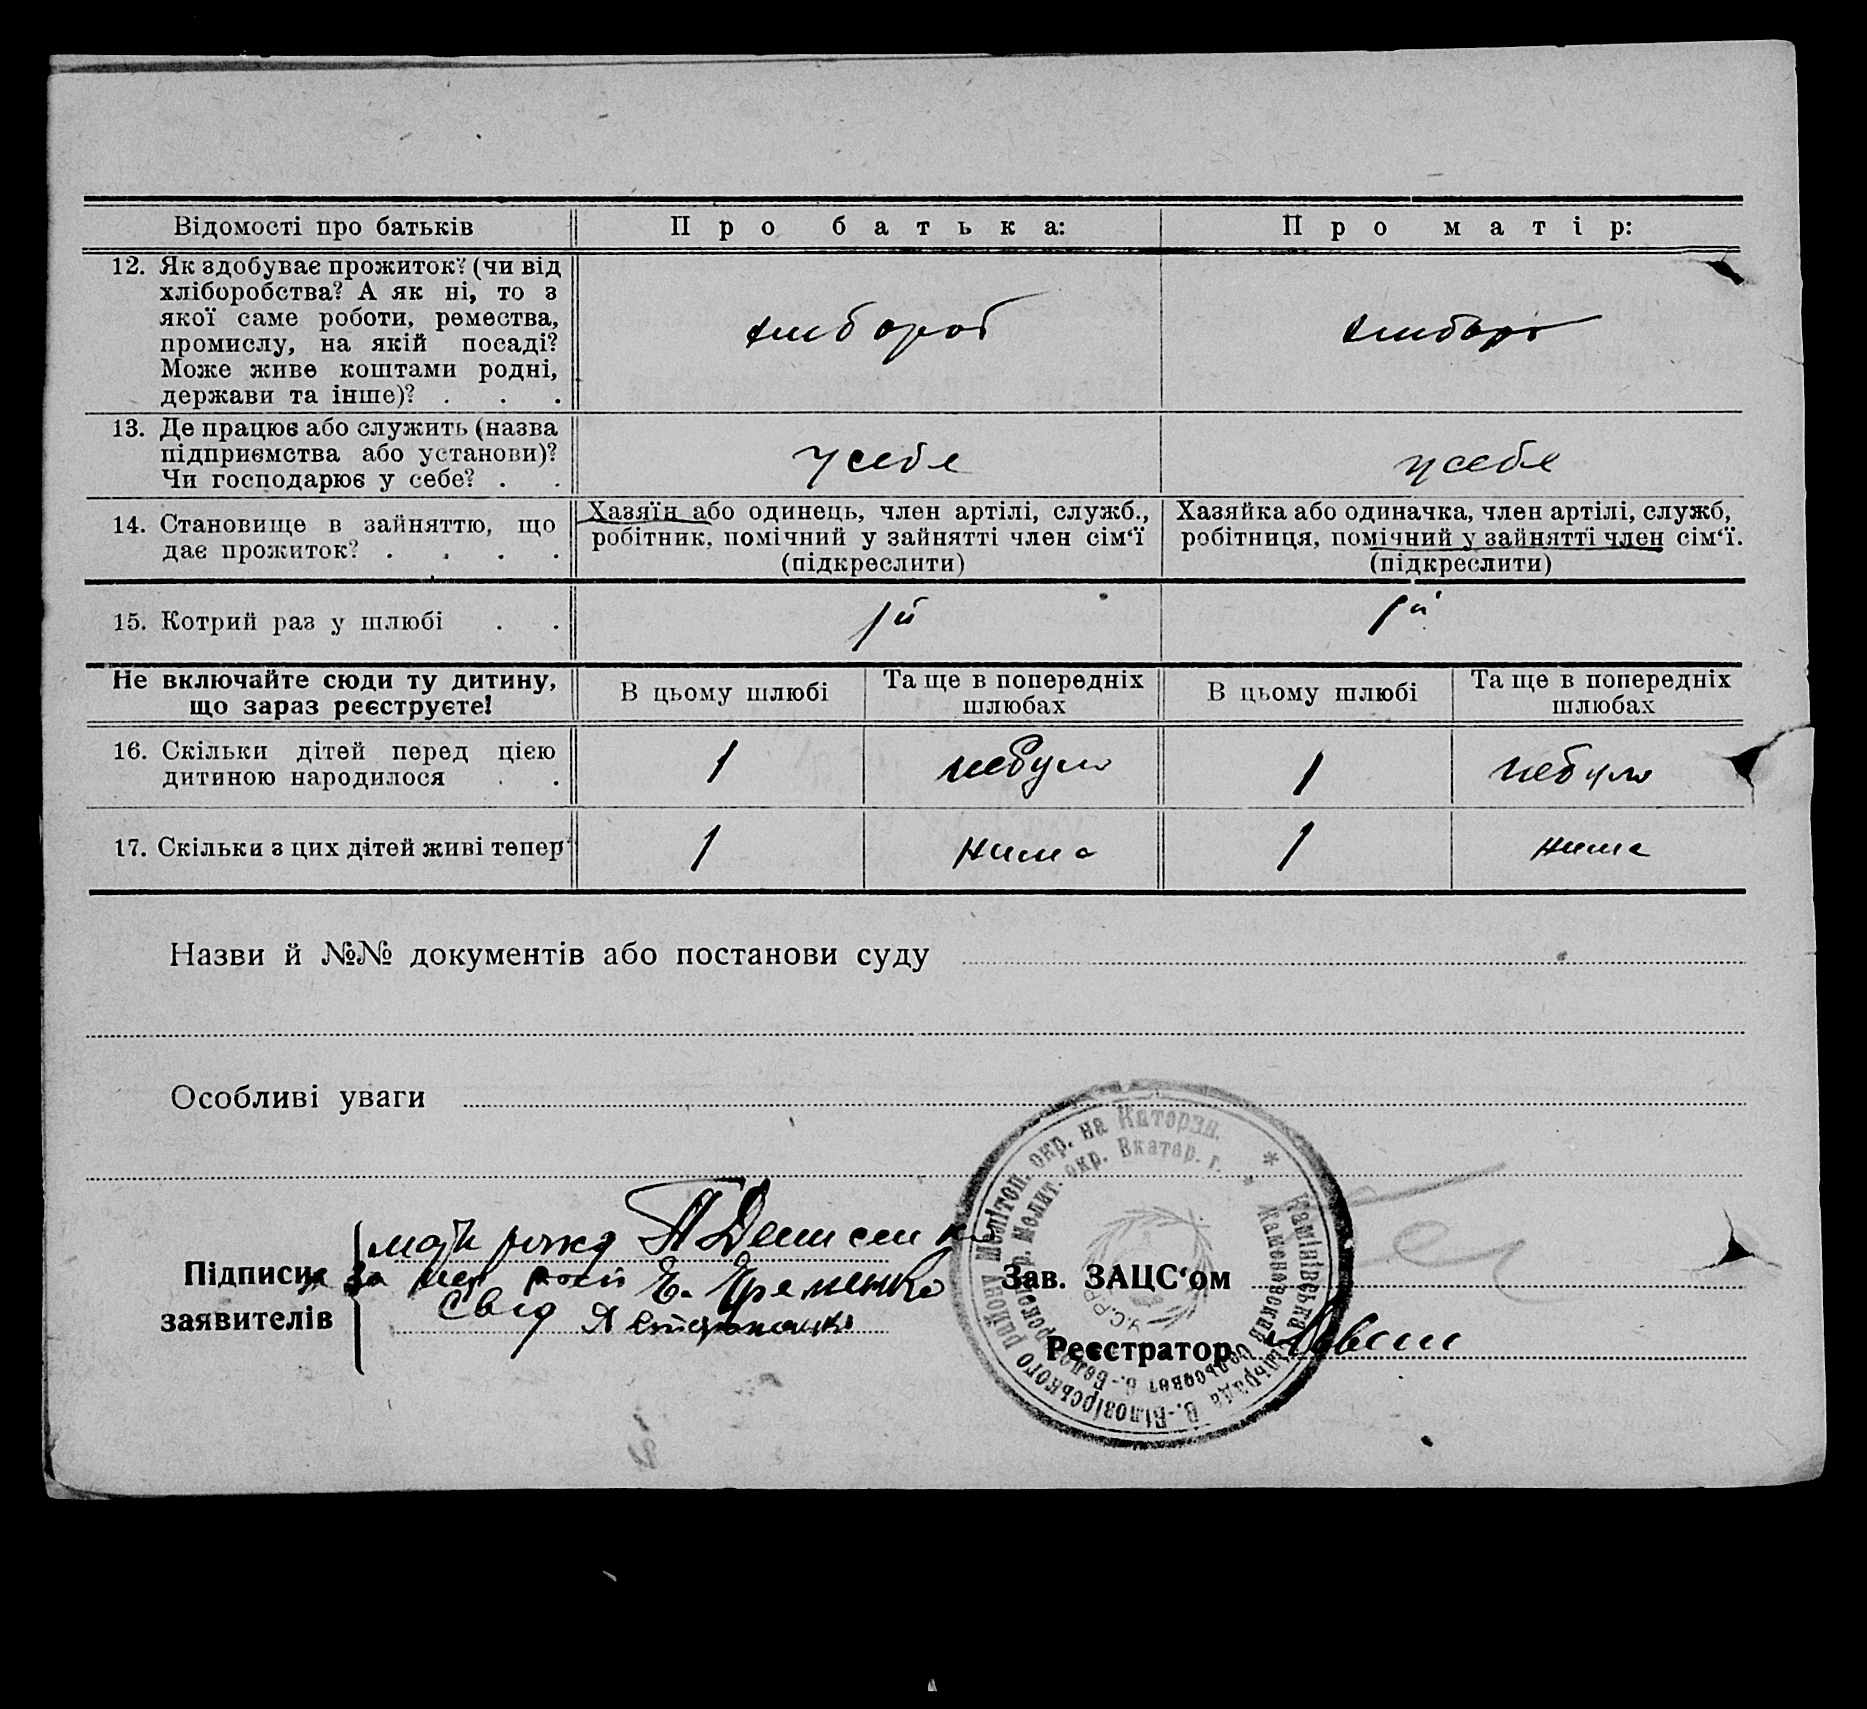 Відомості про батьків
Про батька:
Про матір:
12. Як здобуває прожиток? (чи від
хліборобства? А як ні, то з
якої саме роботи, ремества,
промислу, на якій посаді?
Може живе коштами родні,
держави та інше)? . . .
хлибороб
хлибороб
13. Де працює або служить (назва
підприємства або установи)?
Чи господарює у себе? . .
у себе
у себе
14. Становище в зайняттю, що
дає прожиток? . . . .
Хазяїн або одинець, член артілі, служб.,
робітник, помічний у зайнятті член сім‘ї
(підкреслити)
Хазяйка або одиначка, член артілі, служб,
робітниця, помічний у зайнятті член сім‘ї.
(підкреслити)
15. Котрий раз у шлюбі . .
1й
1й
Не включайте сюди ту дитину,
що зараз реєструєте!
В цьому шлюбі
Та ще в попередніх
шлюбах
В цьому шлюбі
Та ще в попередніх
шлюбах
16. Скільки дітей перед цією
дитиною народилося . .
1
небуло
1
небуло
17. Скільки з цих дітей живі тепер
1
нима
1
нима
Назви й №№ документів або постанови суду
Особливі уваги
Підписи
заявителів
За
Е. Яременко
Свід
Зав. ЗАЦС‘ом
Реєстратор
Камінівська сільрада В.-Білозірського району Мелітоп. окр. на Катерин.
Каменовский сельсовет Мелит. окр. Екатер. г.
У.С.Р.Р.